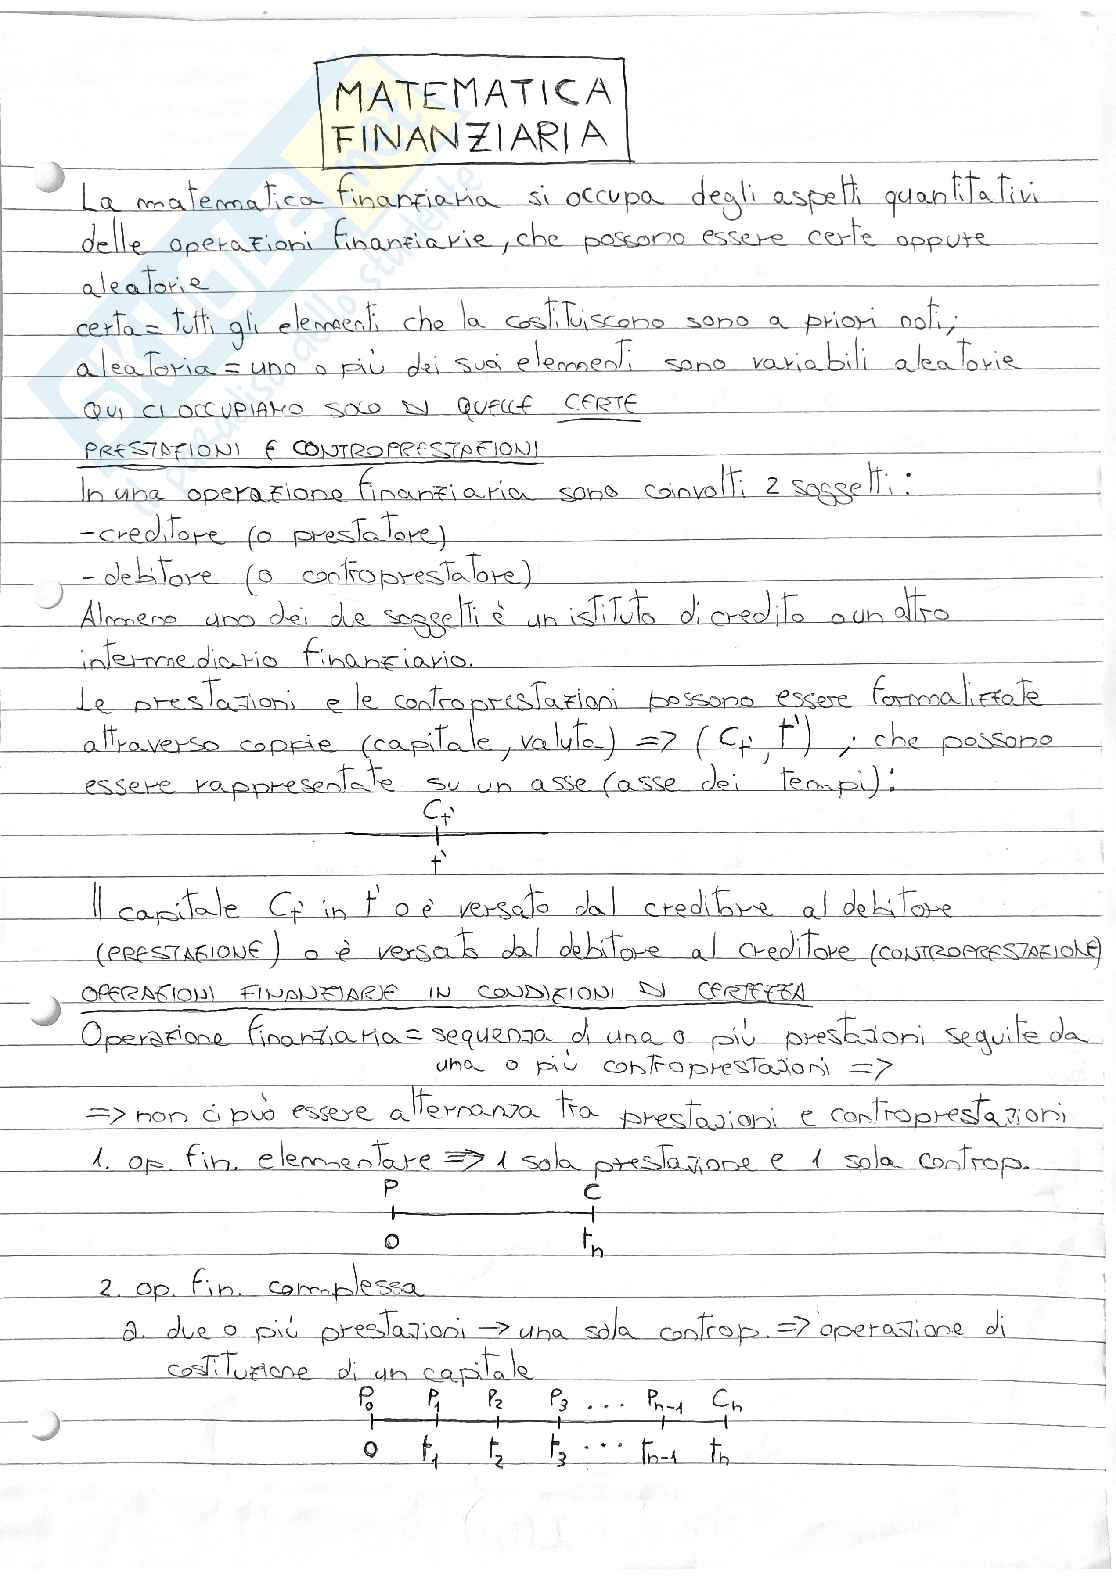 MATEMATICA
FINANZIARIA
La matematica finanziaria si occupa degli aspetti quantitativi
delle operazioni finanziarie, che possono essere certe oppure
aleatorie
certa = tutti gli elementi che la costituiscono sono a priori noti;
aleatoria = uno o più dei suoi elementi sono variabili aleatorie
QUI CI OCCUPIAMO SOLO DI QUELLE CERTE
PRESTAZIONI E CONTROPRESTAZIONI
In una operazione finanziaria sono coinvolti 2 soggetti:
- creditore (o prestatore)
- debitore (o controprestatore)
Almeno uno dei due soggetti è un istituto di credito o un altro
intermediario finanziario.
Le prestazioni e le controprestazioni possono essere formalizzate
attraverso coppie (capitale, valuta) => (Ct', t') ; che possono
essere rappresentate su un asse (asse dei tempi):
Ct'
t'
Il capitale Ct' in t' o è versato dal creditore al debitore
(PRESTAZIONE) o è versato dal debitore al creditore (CONTROPRESTAZIONE)
OPERAZIONI FINANZIARIE IN CONDIZIONI DI CERTEZZA
Operazione finanziaria = sequenza di una o più prestazioni seguite da
una o più controprestazioni =>
=> non ci può essere alternanza tra prestazioni e controprestazioni
1. op. fin. elementare => 1 sola prestazione e 1 sola controp.
P C
0 tn
2. op. fin. complessa
a. due o più prestazioni → una sola controp. => operazione di
costituzione di un capitale
P0 P1 P2 P3 ... Pn-1 Cn
0 t1 t2 t3 ... tn-1 tn